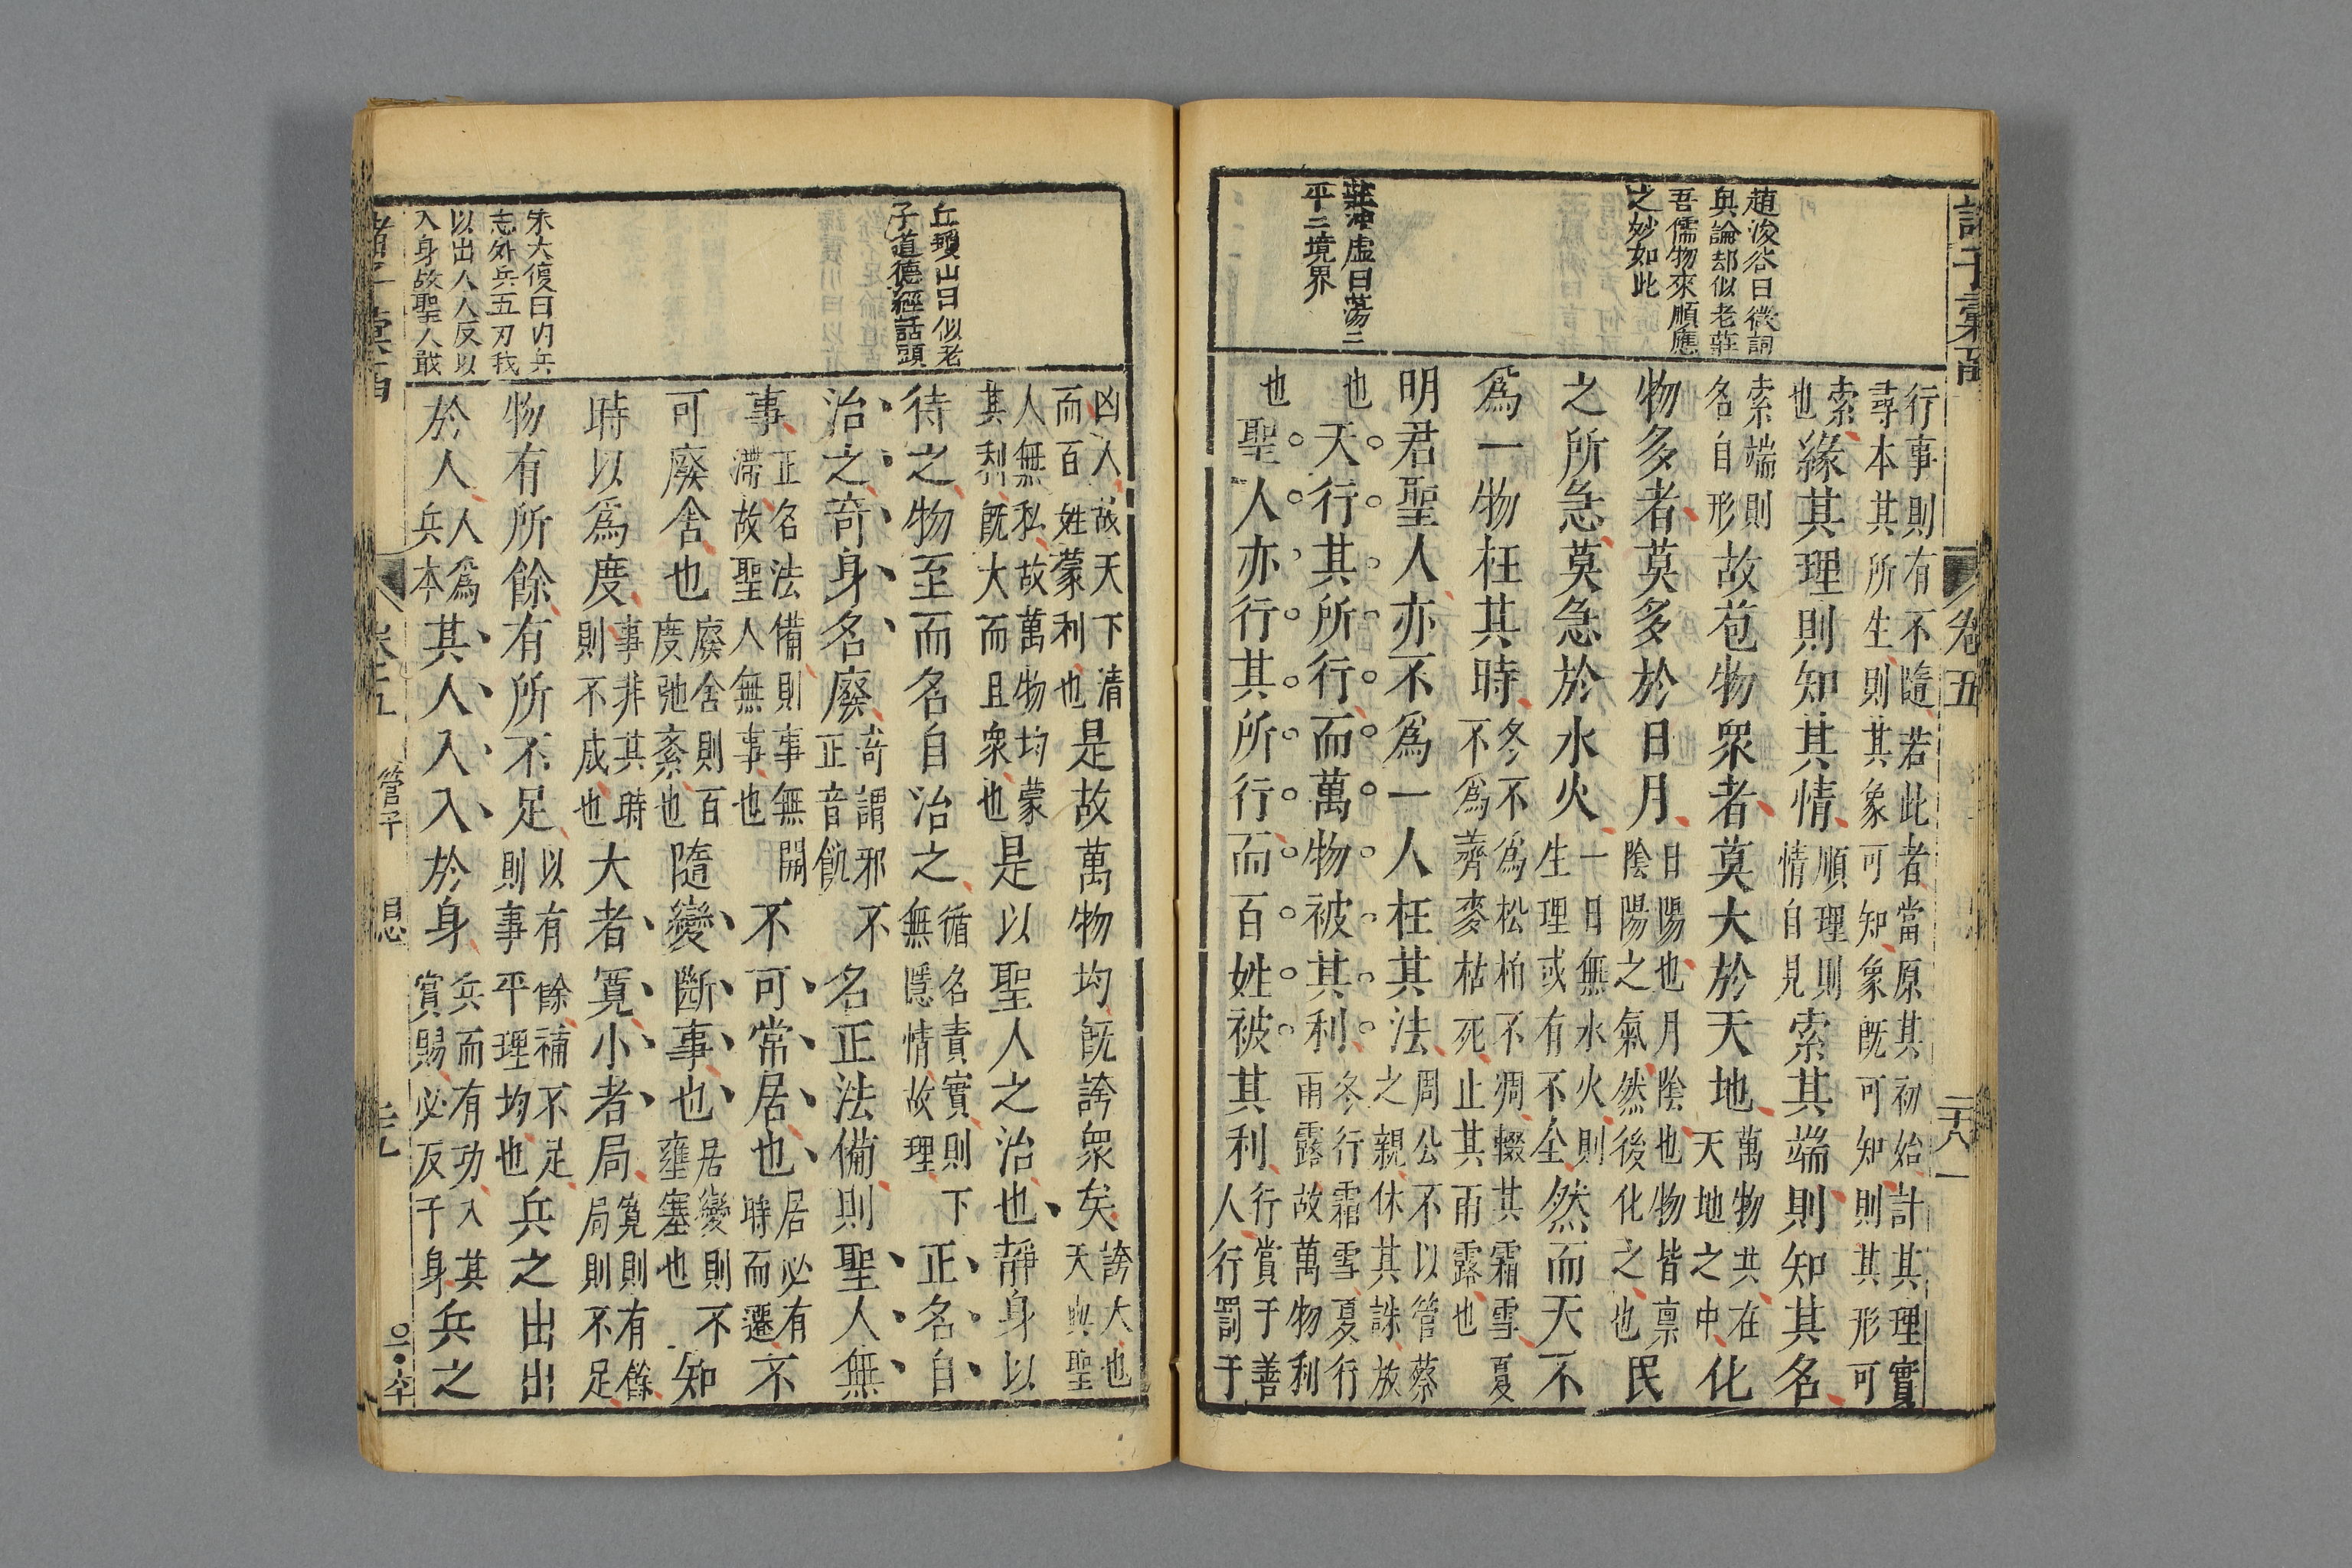 諸子彙函 卷五 二十八
趙浚谷曰微詞
奥論却似老莊
吾儒物來順應
之妙如此
莊沖虛曰蕩二
平二境界
行事則有不隨若此者當原其初始計其理實
尋本其所生則其象可知象既可知則其形可
索也緣其理則知其情順理則情自見索其端則知其名
索端則名自形故苞物衆者莫大於天地萬物共在天地之中化
物多者莫多於日月日陽也月陰也物皆禀陰陽之氣然後化之也民
之所急莫急於水火一日無水火則生理或有不全然而天不
爲一物枉其時冬不爲松柏不凋輟其霜雪夏不爲薺麥枯死止其雨露也
明君聖人亦不爲一人枉其法周公不以管蔡之親休其誅放
也天行其所行而萬物被其利冬行霜雪夏行雨露故萬物利
也聖人亦行其所行而百姓被其利行賞于善人行罰于
丘瓊山曰似老
子道德經話頭
朱大復曰内兵
志外兵五刃我
以出人人反以
入身故聖人敢
凶人故天下清而百姓蒙利也是故萬物均既誇衆矣誇大也天與聖
人無私故萬物均蒙其利既大而且衆也是以聖人之治也靜身以
待之物至而名自治之循名責實則下無隱情故理正名自
治之奇身名廢奇謂邪不正音飢名正法備則聖人無
事正名法備則事無閒滯故聖人無事也不可常居也居必有時而遷不
可廢舍也廢舍則百度弛紊也隨變斷事也居變則不壅塞也知
時以爲度事非其時則不成也大者寬小者局寬則有餘局則不足
物有所餘有所不足以有餘補不足則事平理均也兵之出出
於人人爲兵本其人入入於身兵而有功入其賞賜必反于身兵之
諸子彙函 卷五 管子